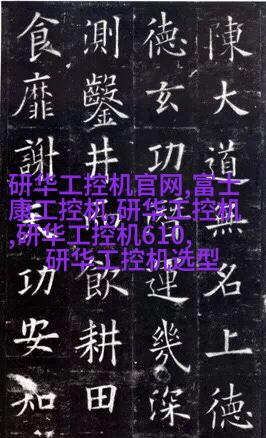 陳大道無名上德
德玄功運幾深
測鑿井飲耕田
食靡謝功安知
研华工控机官网,富士
康工控机,研华工控机
,研华工控机610,
研华工控机选型